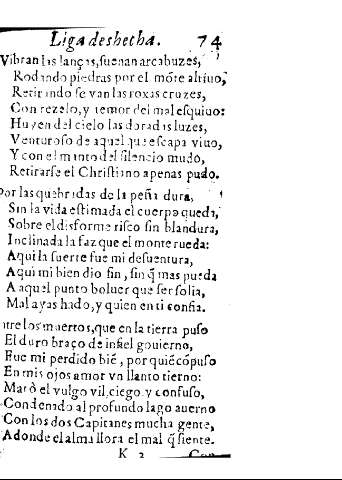 Liga deshecha. 74
Vibran las lanças, suenan arcabuzes,
Rodando piedras por el mõte altiuo,
Retirando se van las roxas cruzes,
Con rezelo, y temor del mal esquiuo:
Huyen del cielo las doradas luzes,
Venturoso de aquel que escapa viuo,
Y con el manto del silencio mudo,
Retirarse el Christiano apenas pudo.
Por las quebradas de la peña dura,
Sin la vida estimada el cuerpo queda,
Sobre el disforme risco sin blandura,
Inclinada la faz que el monte rueda:
Aqui la suerte fue mi desuentura,
Aqui mi bien dio fin, sin q̃ mas pueda
A aquel punto boluer que ser solia,
Mal ayas hado, y quien en ti confia.
ntre los muertos, que en la tierra puso
El duro braço de infiel gouierno,
Fue mi perdido biẽ, por quiẽ cõpuso
En mis ojos amor vn llanto tierno:
Matò el vulgo vil, ciego, y confuso,
Condenado al profundo lago auerno
Con los dos Capitanes mucha gente,
Adonde el alma llora el mal q̃ siente.
K 2 Con